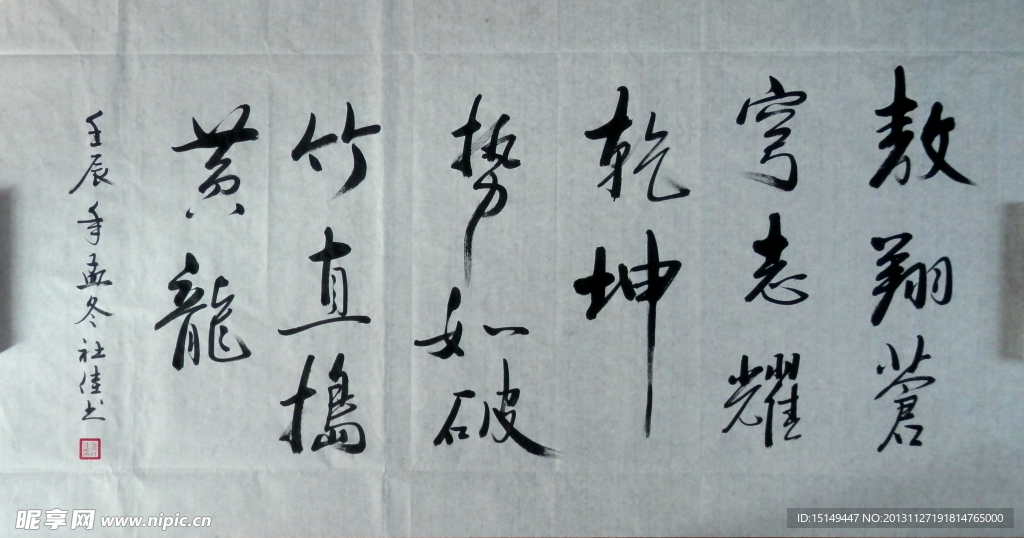 敖翔蒼
穹志耀
乾坤
勢如破
竹直搗
黄龍
壬辰年孟冬社佳书
昵享网 www.nipic.cn
ID:15149447 NO:20131127191814765000